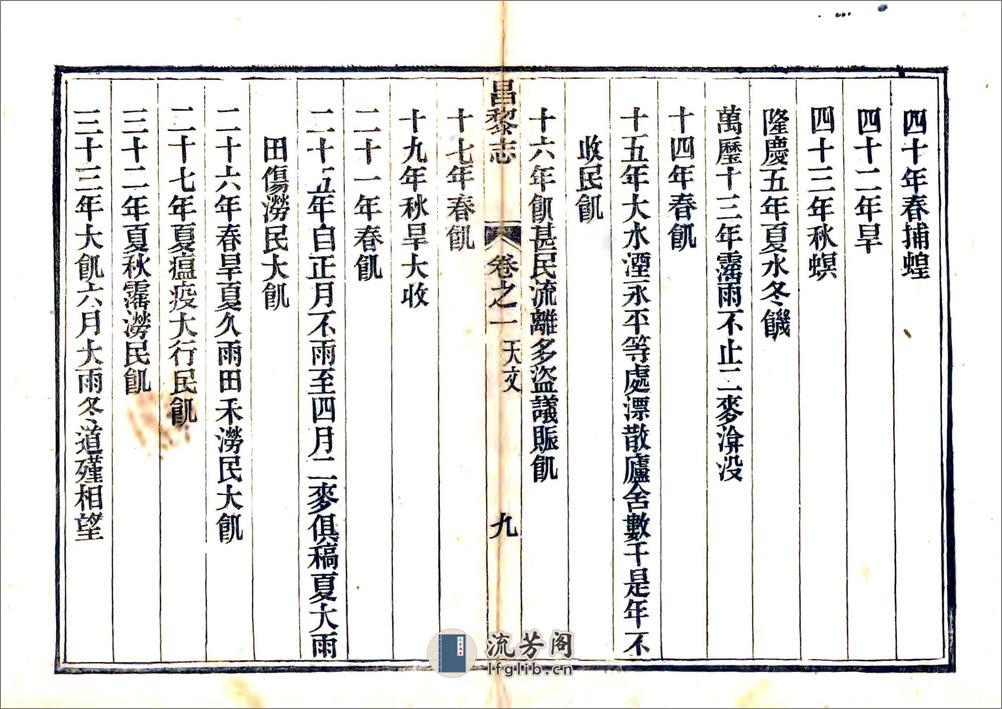 四十年春捕蝗
四十二年旱
四十三年秋螟
隆慶五年夏水冬饑
萬歷十三年霪雨不止二麥渰没
十四年春飢
十五年大水湮永平等處漂散廬舍數千是年不
收民飢
十六年飢甚民流離多盜議賑飢
昌黎志 卷之一 天文 九
十七年春飢
十九年秋旱大收
二十一年春飢
二十五年自正月不雨至四月二麥俱稿夏大雨
田傷澇民大飢
二十六年春旱夏久雨田禾澇民大飢
二十七年夏瘟疫大行民飢
三十二年夏秋霪澇民飢
三十三年大飢六月大雨冬道殣相望
流芳阁
lfglib.cn